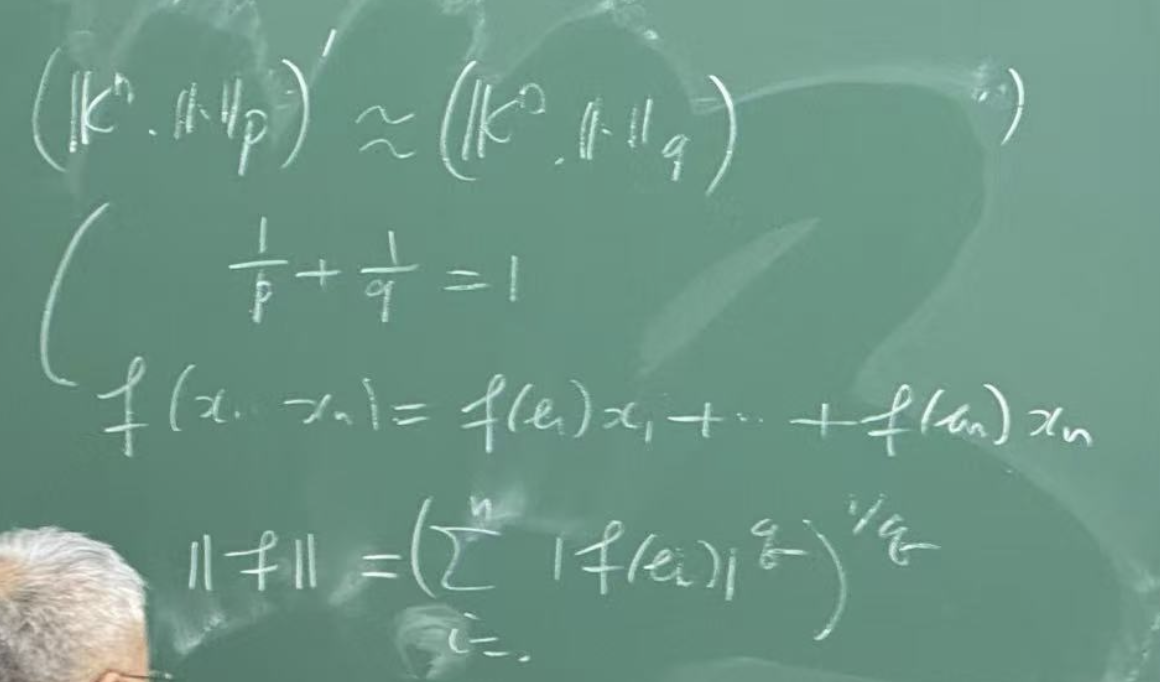 (𝕂ⁿ, ‖·‖_p)' ≈ (𝕂ⁿ, ‖·‖_q) )
( 1/p + 1/q = 1
f(x₁ … xₙ) = f(e₁)x₁ + … + f(eₙ)xₙ
‖f‖ = (∑_{i=1}^{n} |f(eᵢ)|^q)^{1/q}